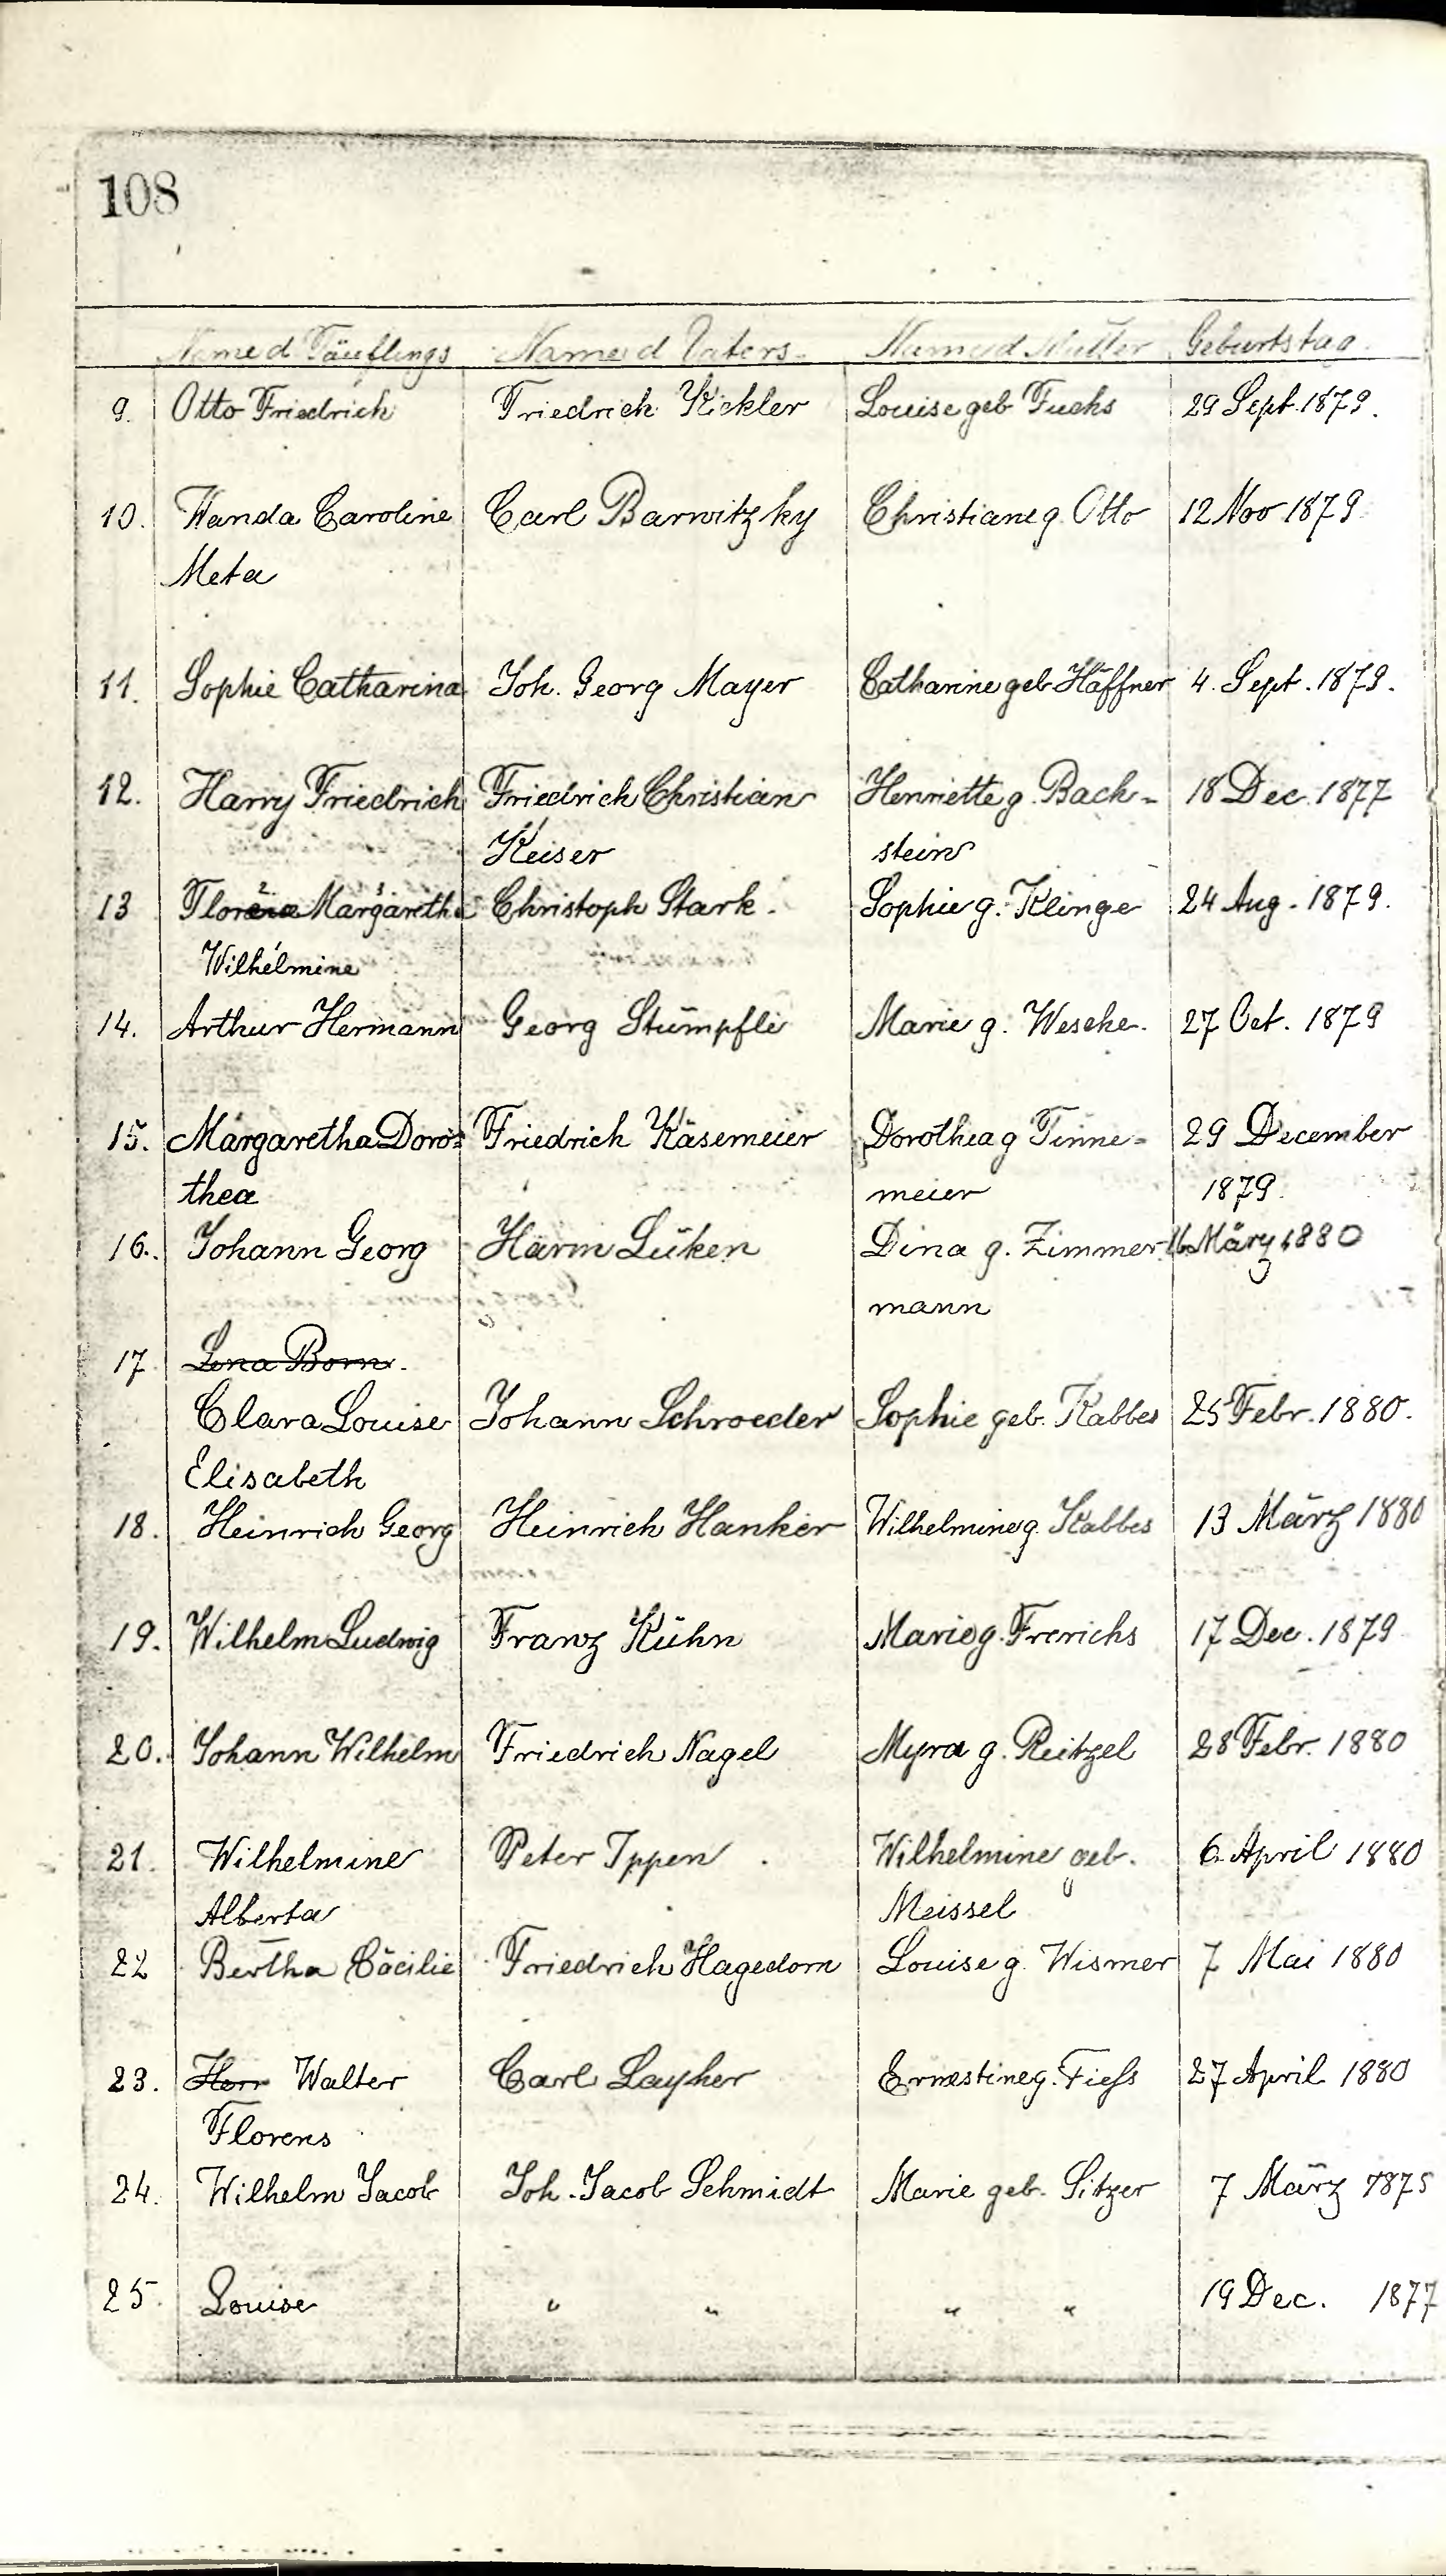 108
Name d Täuflings Name d Vaters Name d Mutter Geburtstag
9. Otto Friedrich Friedrich Kickler Louise geb Fuchs 29 Sept. 1879.
10. Wanda Caroline Carl Barwitzky Christiane g. Otto 12 Nov 1879
Meta
11. Sophie Catharina Joh. Georg Mayer Catharine geb. Häffner 4. Sept. 1879.
12. Harry Friedrich Friedrich Christian Henriette g. Bach- 18 Dec. 1877
Keiser stein
13 Margaretha Christoph Stark. Sophie g. Klinge 24 Aug. 1879.
Wilhelmine
14. Arthur Hermann Georg Stümpfle Marie g. Weseke. 27 Oct. 1879
15. Margaretha Doro= Friedrich Käsemeier Dorothea g Tinne- 29 December
thea meier 1879.
16. Johann Georg Harm Lüken Dina g. Zimmer- 16 März 1880
mann
17 Lena Born.
Clara Louise Johann Schroeder Sophie geb. Kabbes 25 Febr. 1880.
Elisabeth
18. Heinrich Georg Heinrich Hanker Wilhelmine g. Kabbes 13 März 1880
19. Wilhelm Ludwig Franz Kühn Marie g. Frerichs 17 Dec. 1879
20. Johann Wilhelm Friedrich Nagel Myra g. Reitzel 28 Febr. 1880
21. Wilhelmine Peter Ippen Wilhelmine geb. 6. April 1880
Alberta Meissel
22 Bertha Cäcilie Friedrich Hagedorn Louise g. Wismer 7 Mai 1880
23. Herr Walter Carl Layher Ernestine g. Fieß 27 April 1880
Florens
24. Wilhelm Jacob Joh. Jacob Schmidt Marie geb. Sitzer 7 März 1875
25. Louise " " " " 19 Dec. 1877